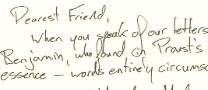 Dearest Friend,
When you speak of our letters
Benjamin, who found in Proust's
essence – words entirely circumsc